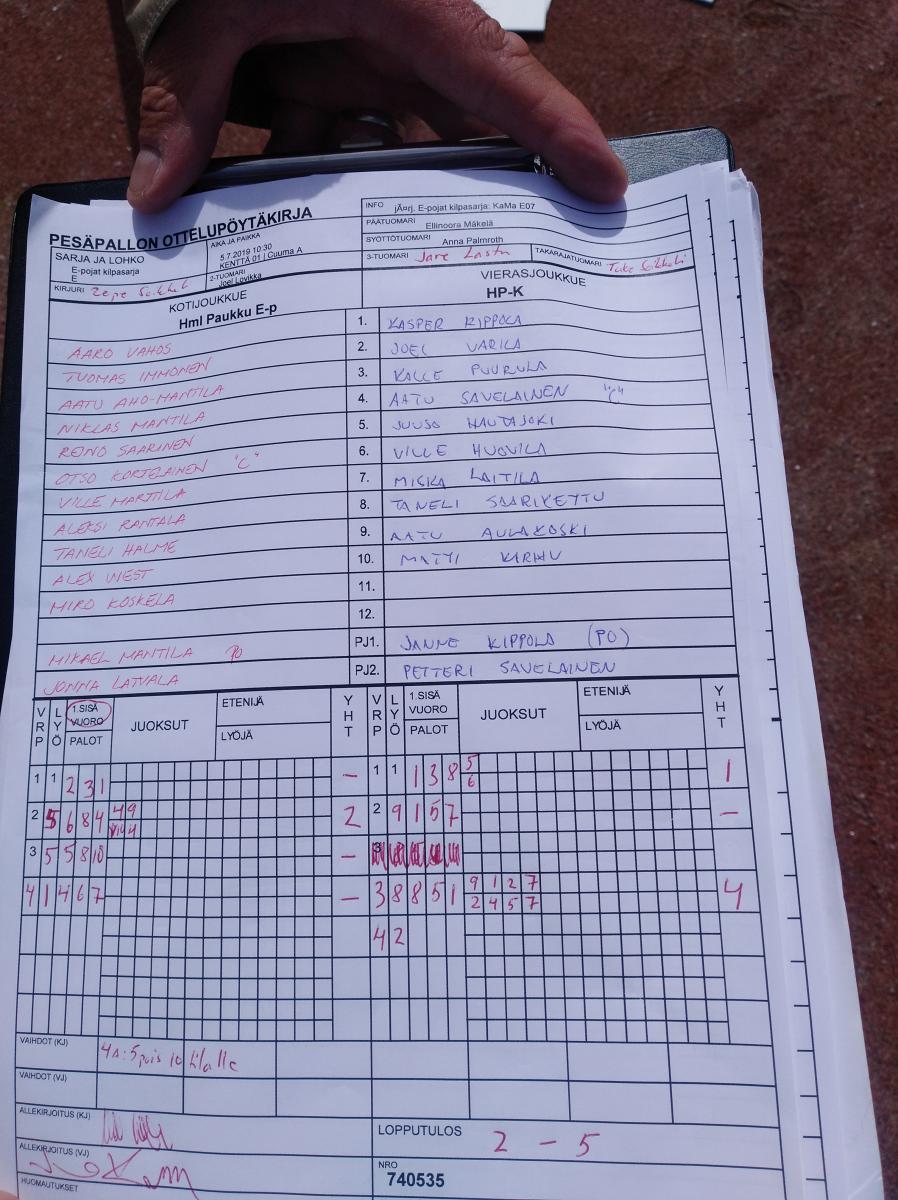 PESÄPALLON OTTELUPÖYTÄKIRJA
SARJA JA LOHKO
E-pojat kilpasarja
E
AIKA JA PAIKKA
5.7.2019 10:30
KENTTÄ 01 | Cuuma A
KIRJURI
2-TUOMARI
Joel Lovikka
INFO jÃ¤rj. E-pojat kilpasarja: KaMa E07
PÄÄTUOMARI Ellinoora Mäkelä
SYÖTTÖTUOMARI Anna Palmroth
3-TUOMARI Jare
TAKARAJATUOMARI
KOTIJOUKKUE
Hml Paukku E-p
VIERASJOUKKUE
HP-K
AARO VAHOS 1. KASPER KIPPOLA
TUOMAS IMMONEN 2. JOEL VARILA
AATU AHO-MANTILA 3. KALLE PUURULA
NIKLAS MANTILA 4. AATU SAVELAINEN "C"
REINO SAARINEN 5. JUUSO HAUTAJOKI
OTSO KORTELAINEN "C" 6. VILLE HUOVILA
VILLE MARTTILA 7. MISKA LAITILA
ALEKSI RANTALA 8. TANELI SAARIKETTU
TANELI HALME 9. AATU AULAKOSKI
ALEX WEST 10. MATTI KARHU
MIRO KOSKELA 11.
12.
MIKAEL MANTILA PO PJ1. JANNE KIPPOLA (PO)
JONNA LATVALA PJ2. PETTERI SAVELAINEN
VRP LYÖ 1.SISÄ VUORO PALOT JUOKSUT ETENIJÄ LYÖJÄ YHT VRP LYÖ 1.SISÄ VUORO PALOT JUOKSUT ETENIJÄ LYÖJÄ YHT
1 1 2 3 1 - 1 1 1 3 8 5 6 1
2 5 6 8 4 4 9 2 2 9 1 5 7 -
3 5 5 8 10 - 3
4 1 4 6 7 - 3 8 8 5 1 9 1 2 7 4
2 4 5 7
4 2
VAIHDOT (KJ) 4A: 5 pois 10 tilalle
VAIHDOT (VJ)
ALLEKIRJOITUS (KJ)
ALLEKIRJOITUS (VJ)
HUOMAUTUKSET
LOPPUTULOS 2 - 5
NRO
740535